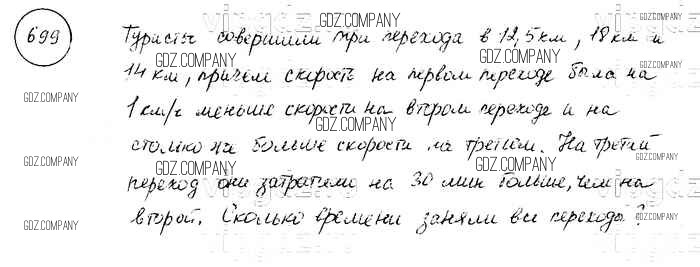 699
Туристы совершили три перехода в 12,5 км, 18 км и
14 км, причем скорость на первом переходе была на
1 км/ч меньше скорости на втором переходе и на
столько же больше скорости на третьем. На третий
переход они затратили на 30 мин больше, чем на
второй. Сколько времени заняли все переходы?
GDZ.COMPANY
GDZ.COMPANY
GDZ.COMPANY
GDZ.COMPANY
GDZ.COMPANY
GDZ.COMPANY
GDZ.COMPANY
GDZ.COMPANY
GDZ.COMPANY
GDZ.COMPANY
GDZ.COMPANY
GDZ.COMPANY
GDZ.COMPANY
GDZ.COMPANY